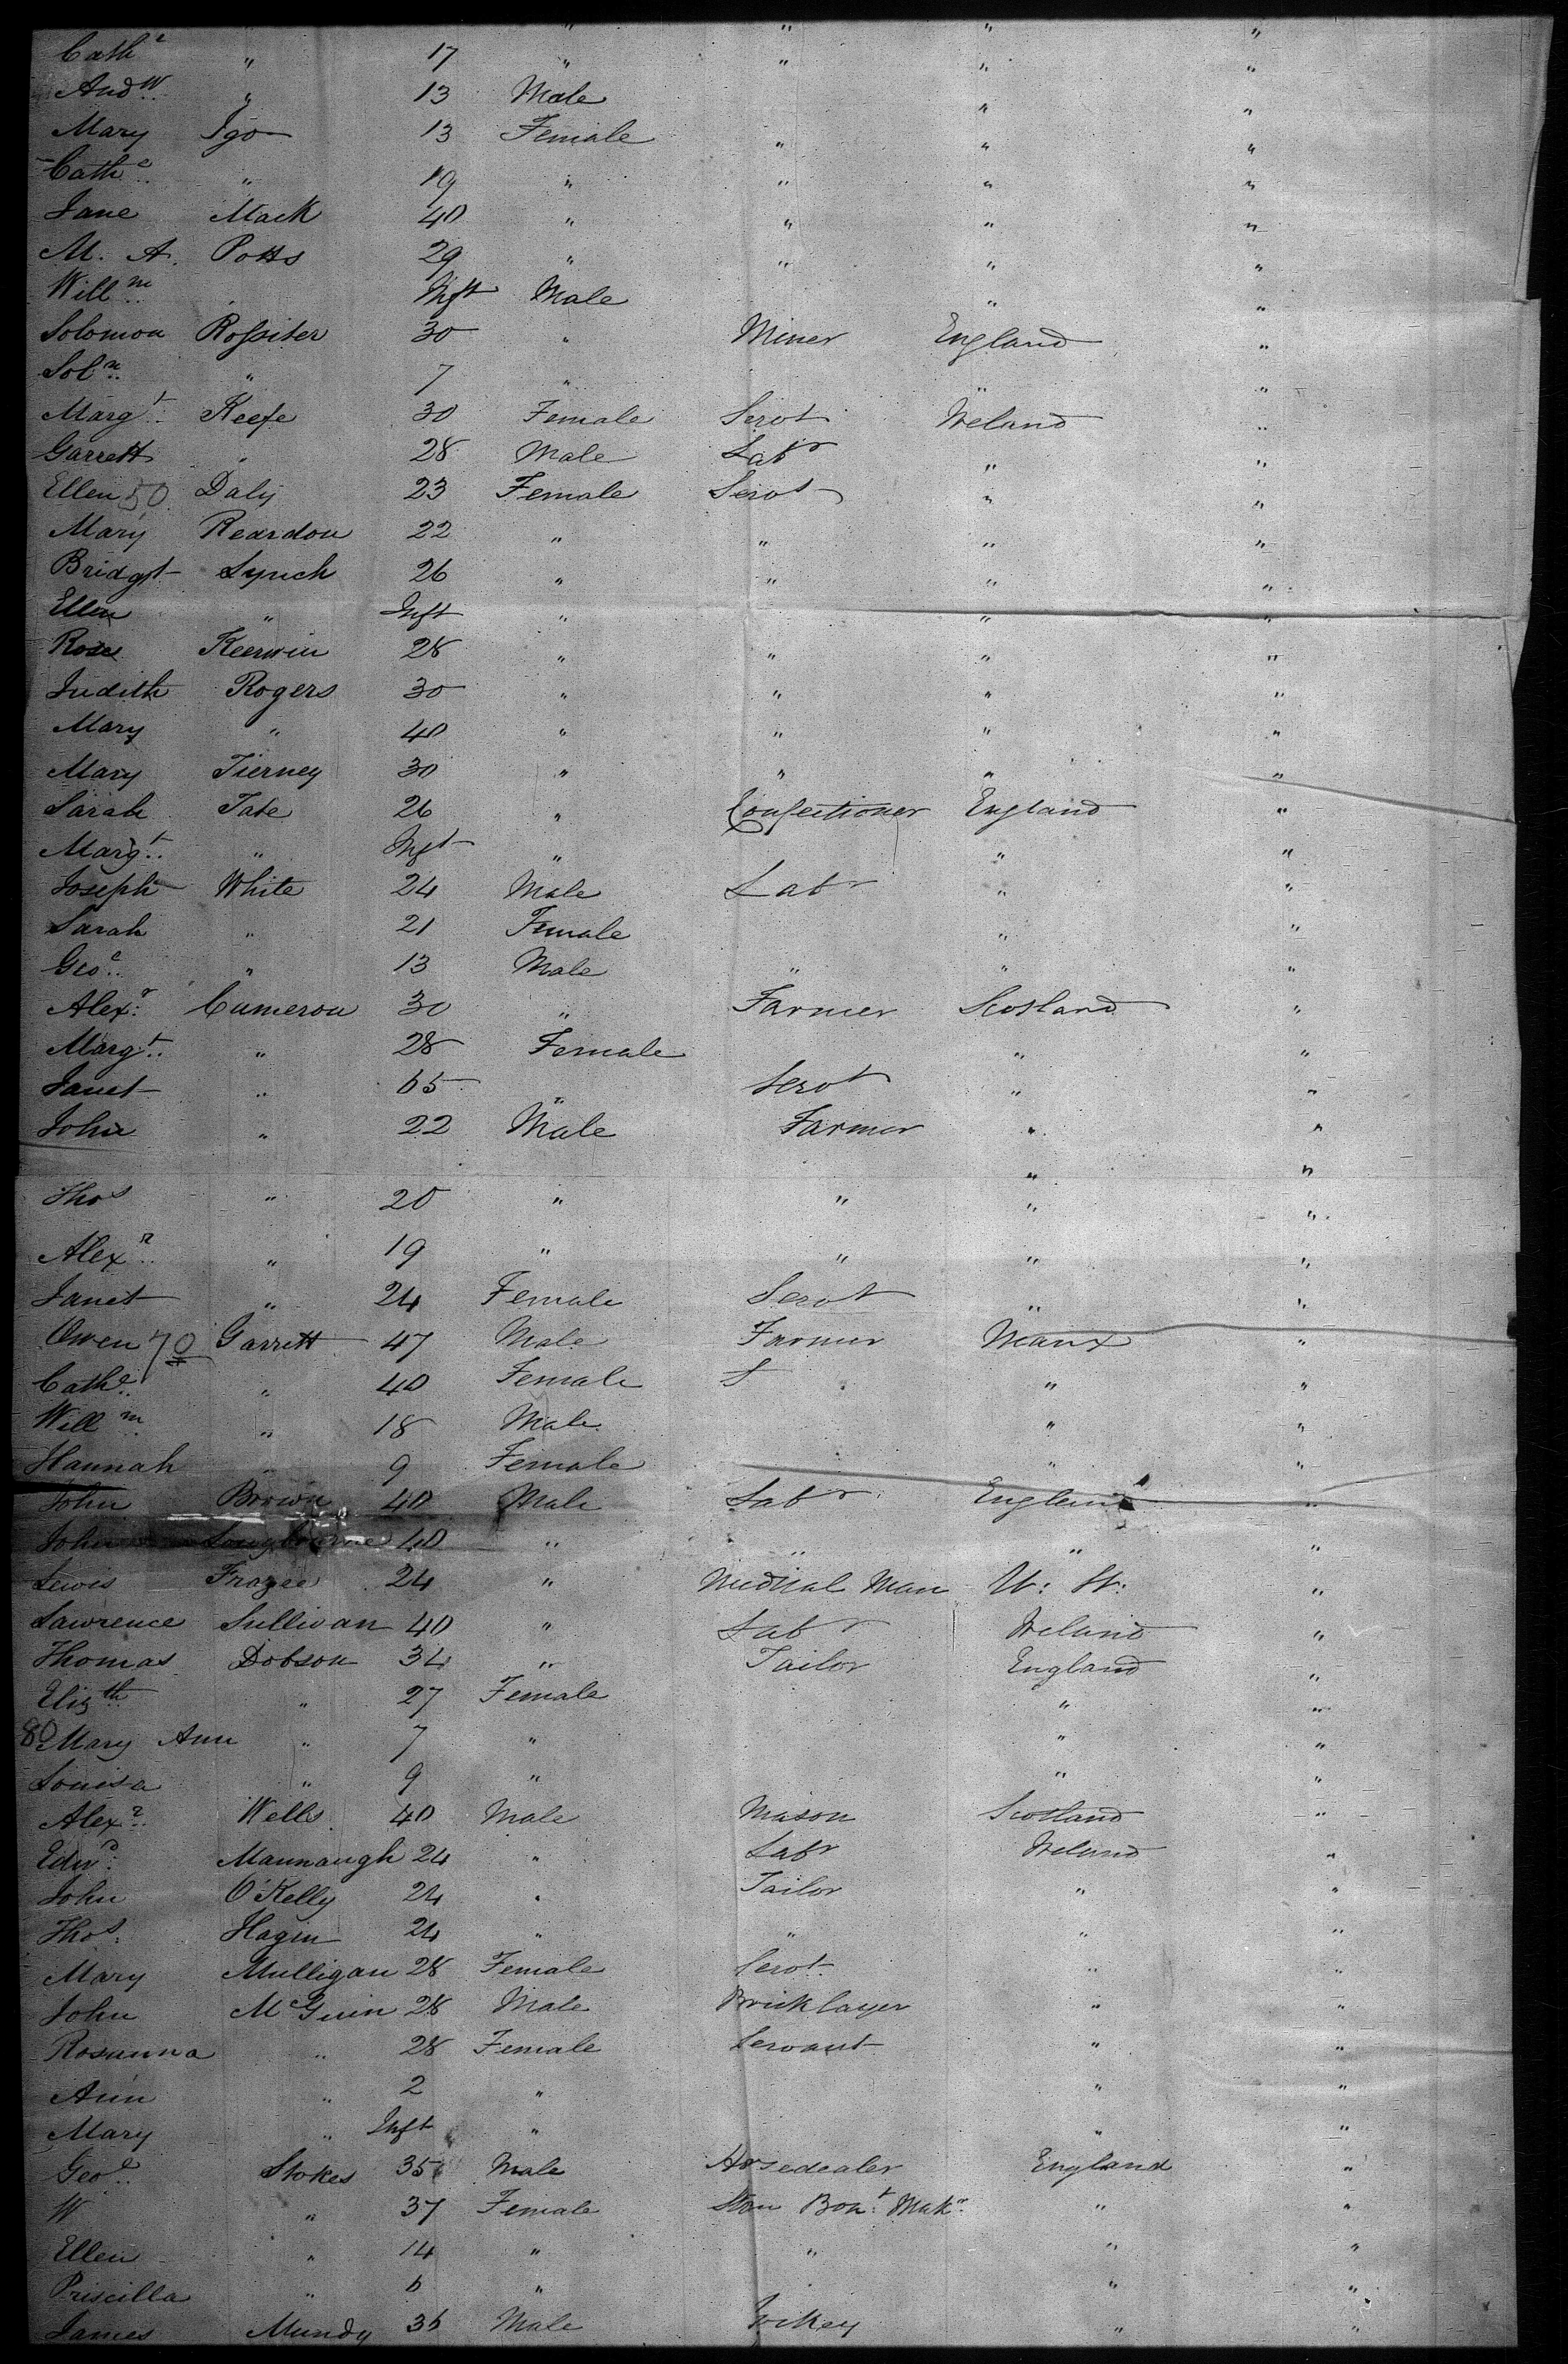 " " " "
Cath.e " 17 " " " "
And.w " 13 Male " "
Mary Igo 13 Female " " "
Cath.e " 19 " " " "
Jane Mack 40 " " " "
M. A. Potts 29 " " " "
Will.m " Inft Male " "
Solomon Rossiter 30 " Miner England "
Sol.n " 7 " " "
Marg.t Keefe 30 Female Servt Ireland "
Garrett " 28 Male Labr " "
Ellen 50 Daly 23 Female Servt " "
Mary Reardon 22 " " " "
Bridgt Lynch 26 " " " "
Ellen " Inft " " "
Rose Keerwin 28 " " " "
Judith Rogers 30 " " " "
Mary " 40 " " " "
Mary Tierney 30 " " " "
Sarah Tate 26 " Confectioner England "
Marg.t " Inft " " "
Joseph White 24 Male Labr " "
Sarah " 21 Female " "
Geo.e " 13 Male " " "
Alex.r Cameron 30 " Farmer Scotland "
Marg.t " 28 Female " "
Janet " 65 " Servt " "
John " 22 Male Farmer " "
" "
Thos " 20 " " " "
Alex.r " 19 " " " "
Janet " 24 Female Servt " "
Owen 70 Garrett 47 Male Farmer Manx "
Cath.e " 40 Female S " "
Will.m " 18 Male " "
Hannah " 9 Female " "
John Brown 40 Male Labr England "
John Longbourne 40 " " " "
Lewis Frazee 24 " Medical Man U: St: "
Lawrence Sullivan 40 " Labr Ireland "
Thomas Dobson 34 " Tailor England "
Eliz.th " 27 Female " "
80 Mary Ann " 7 " " "
Louisa " 9 " " "
Alex.r Wells 40 Male Mason Scotland "
Edw.d Mannaugh 24 " Labr Ireland "
John O'Kelly 24 " Tailor " "
Thos. Hagin 24 " " " "
Mary Mulligan 28 Female Servt. " "
John McGuin 28 Male Bricklayer " "
Rosanna " 28 Female Servant " "
Ann " 2 " " "
Mary " Inft " " "
Geo.e Stokes 35 Male Horsedealer England "
W " 37 Female Straw Bon.t Mak.r " "
Ellen " 14 " " " "
Priscilla " 6 " " "
James Mundy 36 Male Jockey " "